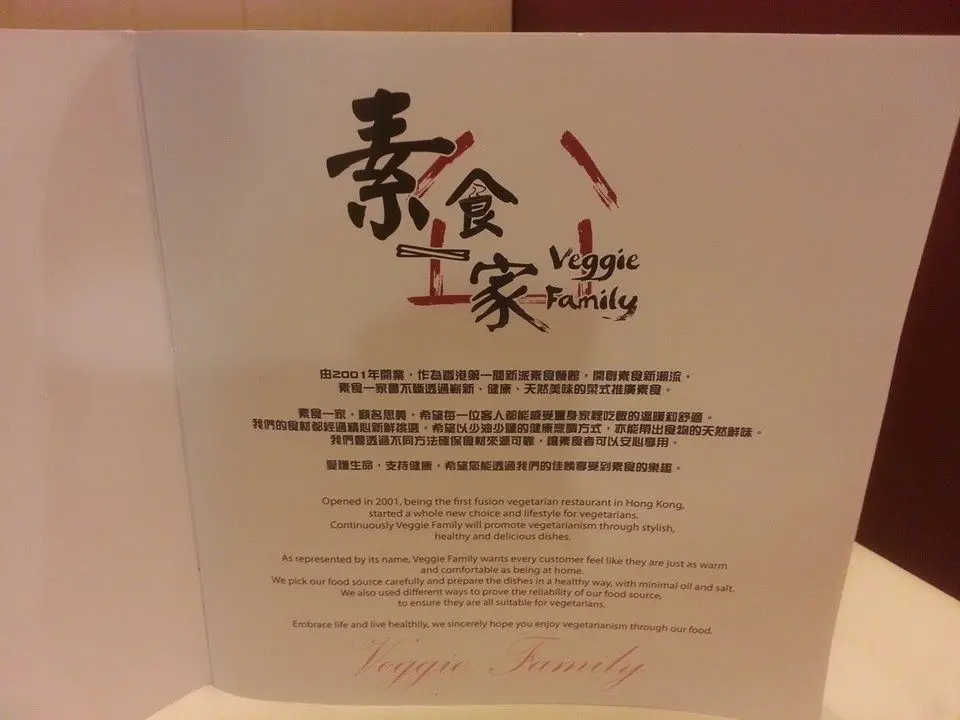 素食一家
Veggie
Family
由2001年開業，作為香港第一間新派素食餐館，開創素食新潮流，
素食一家會不斷透過嶄新、健康、天然美味的菜式推廣素食。
素食一家，顧名思義，希望每一位客人都能感受置身家裡吃飯的溫暖和舒適。
我們的食材都經過精心新鮮挑選，希望以少油少鹽的健康烹調方式，亦能帶出食物的天然鮮味。
我們會透過不同方法確保食材來源可靠，讓素食者可以安心享用。
愛護生命，支持健康，希望您能透過我們的佳餚享受到素食的樂趣。
Opened in 2001, being the first fusion vegetarian restaurant in Hong Kong,
started a whole new choice and lifestyle for vegetarians.
Continuously Veggie Family will promote vegetarianism through stylish,
healthy and delicious dishes.
As represented by its name, Veggie Family wants every customer feel like they are just as warm
and comfortable as being at home.
We pick our food source carefully and prepare the dishes in a healthy way, with minimal oil and salt.
We also used different ways to prove the reliability of our food source,
to ensure they are all suitable for vegetarians.
Embrace life and live healthily, we sincerely hope you enjoy vegetarianism through our food.
Veggie Family